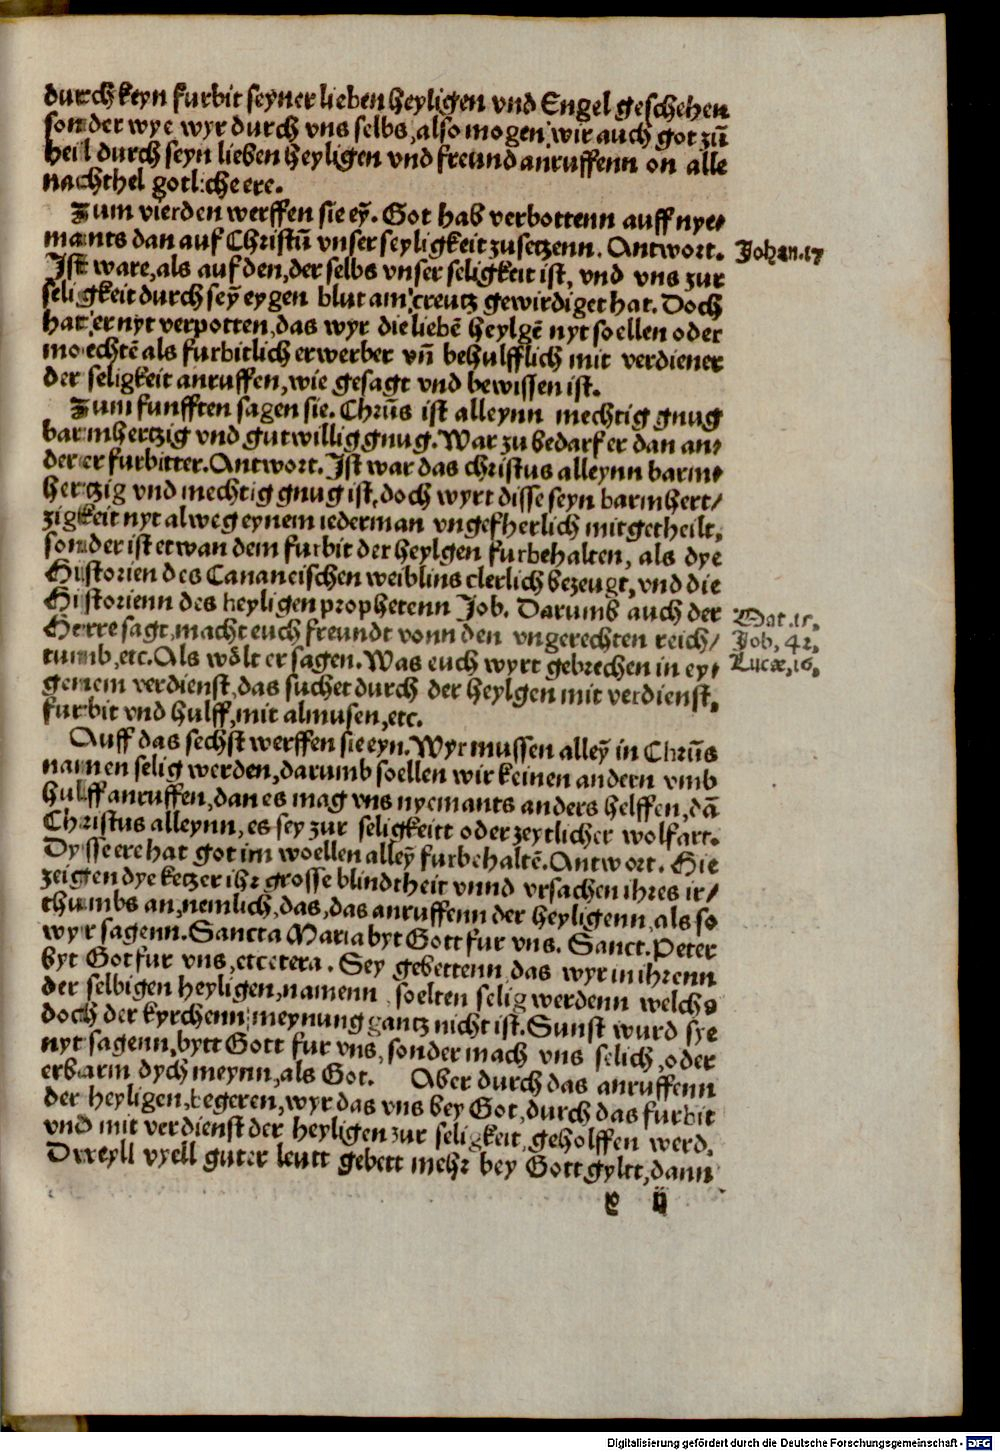 durch keyn furbit seyner lieben heyligen vnd Engel geschehen
sonder wye wyr durch vns selbs, also mogen wir auch got zū
heil durch seyn lieben heyligen vnd freund anruffenn on alle
nachthel gotliche ere.
Zum vierden werffen sie eȳ. Got hab verbottenn auff nye⸗
mants dan auf Christū vnser seyligkeit zusetzenn. Antwort.
Johan.17
Jst ware, als auf den, der selbs vnser seligkeit ist, vnd vns zur
seligkeit durch seȳ eygen blut am creutz gewirdiget hat. Doch
hat er nyt verpotten, das wyr die liebē heylgē nyt soellen oder
moechtē als furbitlich erwerber vñ behulfflich mit verdiener
der seligkeit anruffen, wie gesagt vnd bewissen ist.
Zum funfften sagen sie. Chrūs ist alleynn mechtig gnug
barmhertzig vnd gutwillig gnug. War zu bedarf er dan an⸗
derer furbitter. Antwort. Jst war das christus alleynn barm⸗
hertzig vnd mechtig gnug ist, doch wyrt disse seyn barmhert/
zigkeit nyt alweg eynem iederman vngefherlich mitgetheilt,
sonder ist etwan dem furbit der heylgen furbehalten, als dye
Historien des Cananeischen weiblins clerlich bezeugt, vnd die
Historienn des heyligen prophetenn Job. Darumb auch der
Mat.15.
Herre sagt, macht euch freundt vonn den vngerechten reich/
Job, 42,
tumb, etc. Als wölt er sagen. Was euch wyrt gebrechen in ey⸗
Lucæ, 16,
genem verdienst, das suchet durch der heylgen mit verdienst,
furbit vnd hulff, mit almusen, etc.
Auff das sechst werffen sie eyn. Wyr mussen alleȳ in Chrūs
namen selig werden, darumb soellen wir keinen andern vmb
hulff anruffen, dan es mag vns nyemants anders helffen, dā
Christus alleynn, es sey zur seligkeitt oder zeytlicher wolfart.
Dysse ere hat got im woellen alleȳ furbehaltē. Antwort. Hie
zeigen dye ketzer ihr grosse blindtheit vnnd vrsachen ihres ir⸗
thumbs an, nemlich, das, das anruffenn der heyligenn, als so
wyr sagenn. Sancta Maria byt Gott fur vns. Sanct. Peter
byt Got fur vns, etcetera. Sey gebettenn das wyr in ihrenn
der selbigen heyligen, namenn soelten selig werdenn welchs
doch der kyrchenn meynung gantz nicht ist. Sunst wurd sye
nyt sagenn, bytt Gott fur vns, sonder mach vns selich, oder
erbarm dych meynn, als Got. Aber durch das anruffenn
der heyligen, begeren, wyr das vns bey Got, durch das furbit
vnd mit verdienst der heyligen zur seligkeit geholffen werd.
Dweyll vyell guter leutt gebett mehr bey Gott gyltt, dann
ij
Digitalisierung gefördert durch die Deutsche Forschungsgemeinschaft - DFG